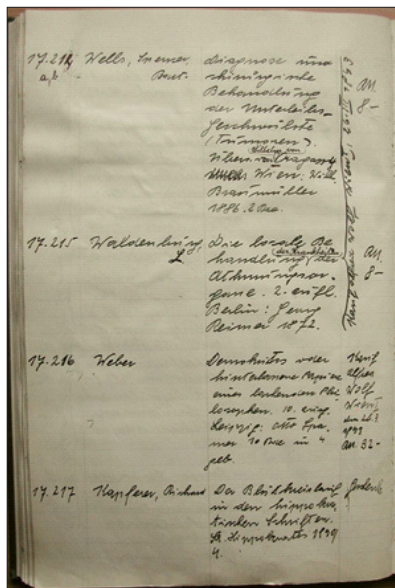 17.214 Wells, Spencer, Diagnose und
a,b chirurgische
Behandlung
der Unterleibs-
Geschwülste
(Tumoren).
Wien: Wilh.
Braumüller
1886. 2 Bde.
RM.
8-
17.215 Waldenburg, Die locale Be-
L handlung der Krankheiten der
Athmungsor-
gane. 2. Aufl.
Berlin: Georg
Reimer 1872.
RM.
8-
17.216 Weber Demokritos oder
hinterlassene Papiere
eines lachenden Phi-
losophen. 10. Aufl.
Leipzig: Otto
10 Bde in 4
geb.
Kauf
Alfred
Wolf
Wien
1943
RM. 32-
17.217 Kapferer, Richard Der Blutkreislauf
in den hippokra-
tischen Schriften.
Hippokrates 1939
4.
Geschenk